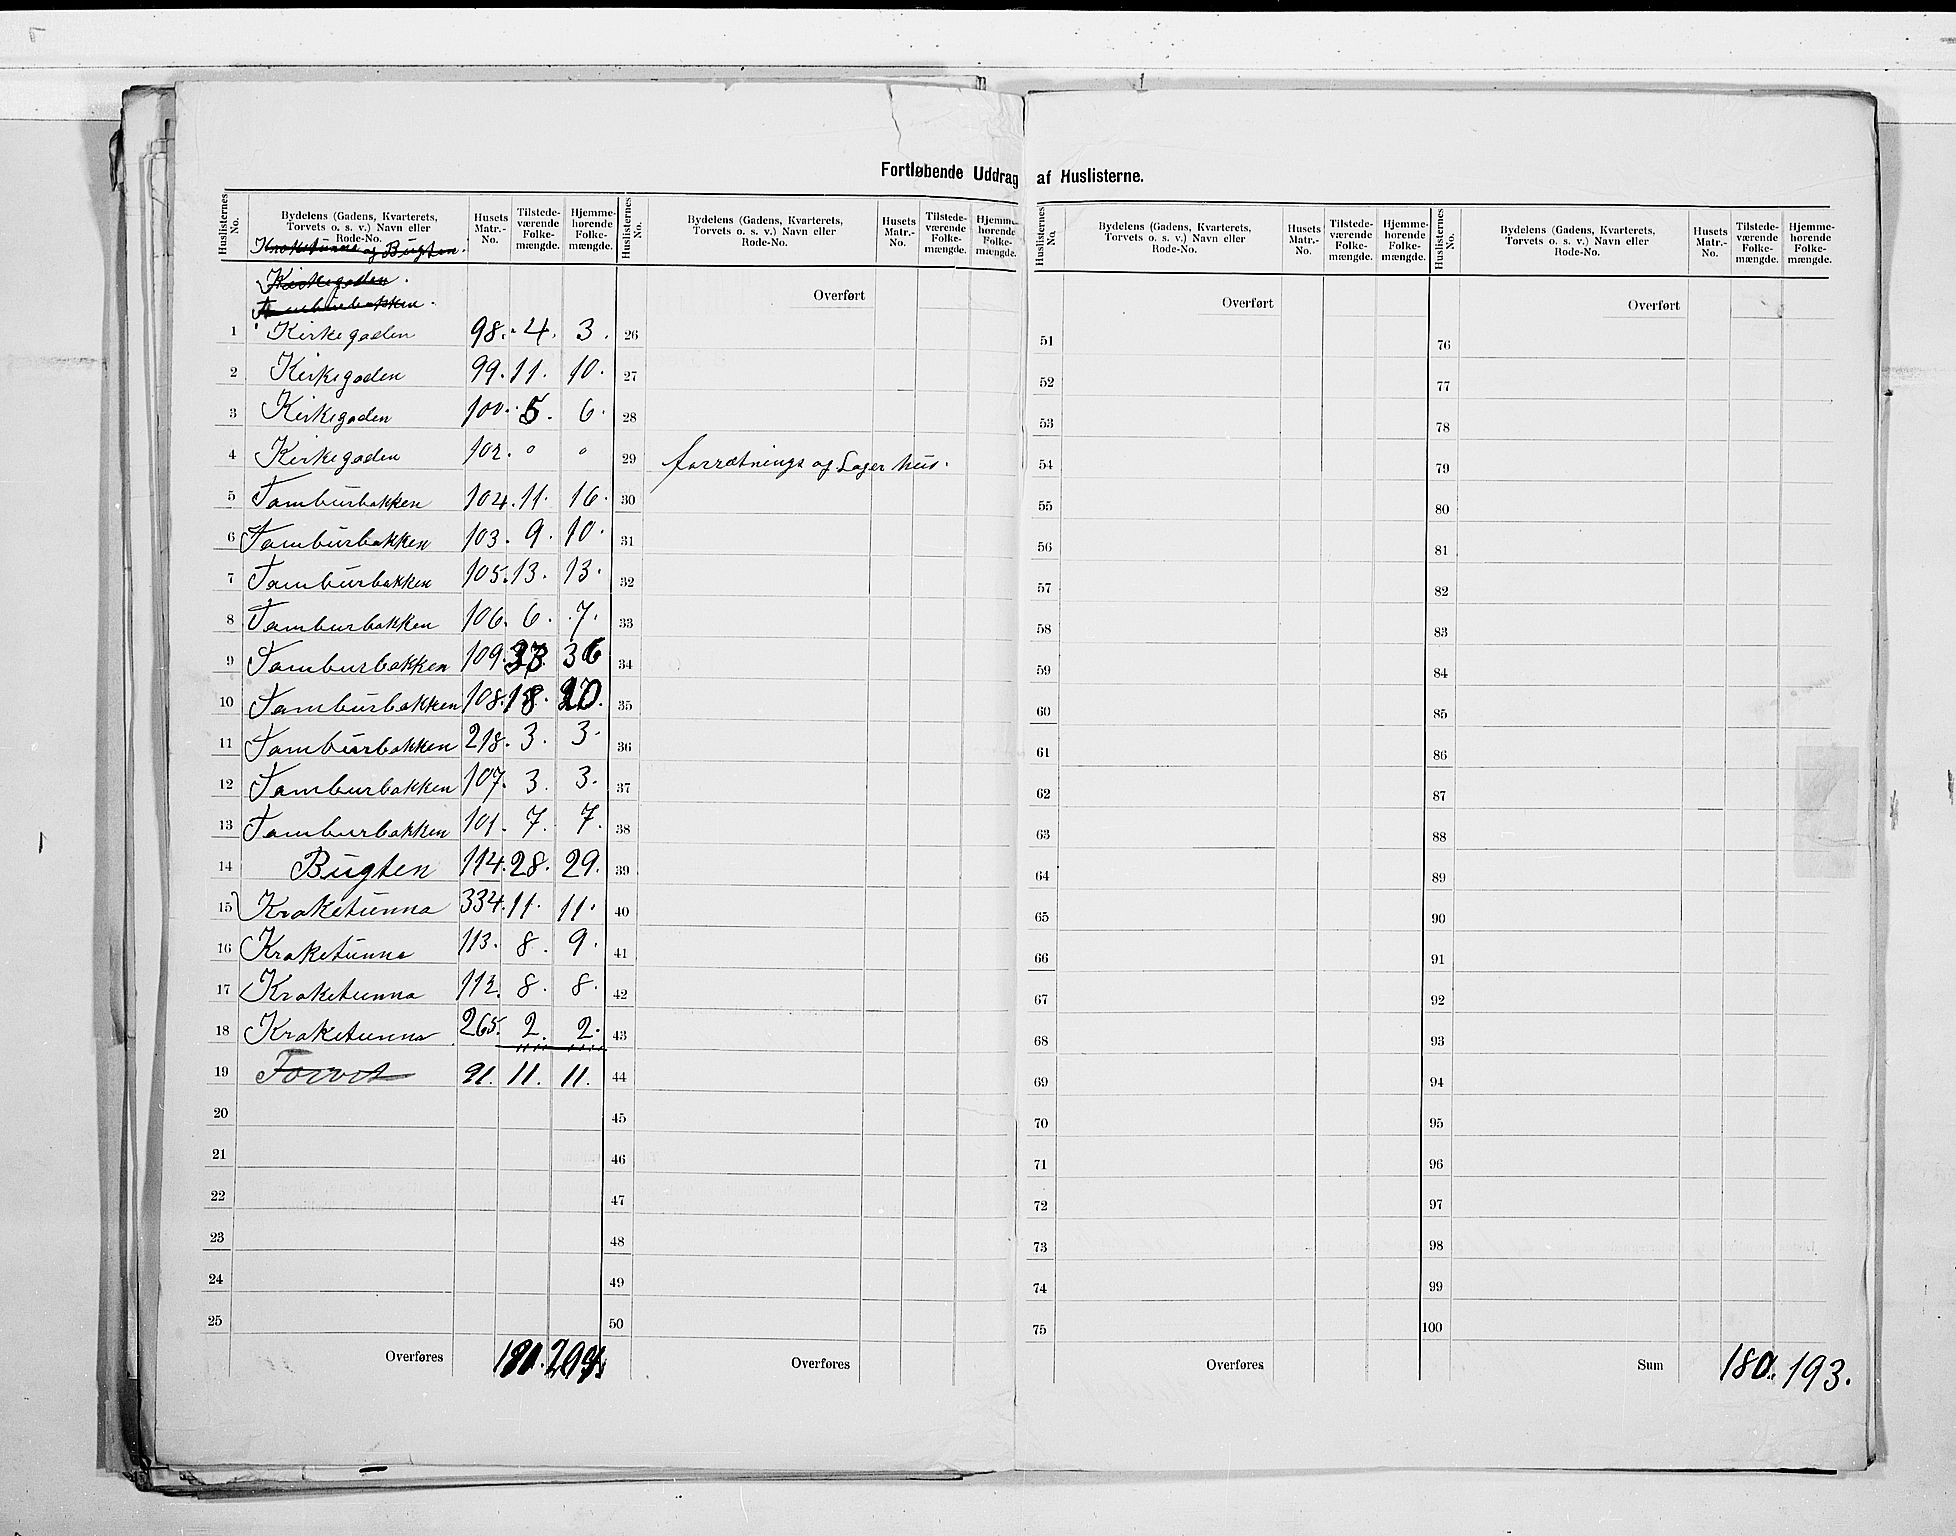 Fortløbende Uddrag af Huslisterne.
Huslisternes No. | Bydelens (Gadens, Kvarterets, Torvets o. s. v.) Navn eller Rode-No. | Husets Matr.-No. | Tilstedeværende Folkemængde. | Hjemmehørende Folkemængde.
Huslisternes No. | Bydelens (Gadens, Kvarterets, Torvets o. s. v.) Navn eller Rode-No. | Husets Matr.-No. | Tilstedeværende Folkemængde. | Hjemmehørende Folkemængde.
Huslisternes No. | Bydelens (Gadens, Kvarterets, Torvets o. s. v.) Navn eller Rode-No. | Husets Matr.-No. | Tilstedeværende Folkemængde. | Hjemmehørende Folkemængde.
Huslisternes No. | Bydelens (Gadens, Kvarterets, Torvets o. s. v.) Navn eller Rode-No. | Husets Matr.-No. | Tilstedeværende Folkemængde. | Hjemmehørende Folkemængde.
Kraketunna og Bugten.
Kirkegaden.
Tamburbakken.
Overført Overført Overført
1 Kirkegaden 98. 4. 3.
2 Kirkegaden 99. 11. 10.
3 Kirkegaden 100. 5. 6.
4 Kirkegaden 102. 0 0
5 Tamburbakken 104. 11. 16.
6 Tamburbakken 103. 9. 10.
7 Tamburbakken 105. 13. 13.
8 Tamburbakken 106. 6. 7.
9 Tamburbakken 109. 36
10 Tamburbakken 108. 18.
11 Tamburbakken 218. 3. 3.
12 Tamburbakken 107. 3. 3.
13 Tamburbakken 101. 7. 7.
14 Bugten 114. 28. 29.
15 Kraketunna 334. 11. 11.
16 Kraketunna 113. 8. 9.
17 Kraketunna 112. 8. 8.
18 Kraketunna 265. 2. 2.
19 Torvet 91. 11. 11.
20
21
22
23
24
25
Overføres
26
27
28
29 forretnings og Lager hus.
30
31
32
33
34
35
36
37
38
39
40
41
42
43
44
45
46
47
48
49
50
Overføres
51
52
53
54
55
56
57
58
59
60
61
62
63
64
65
66
67
68
69
70
71
72
73
74
75
Overføres
76
77
78
79
80
81
82
83
84
85
86
87
88
89
90
91
92
93
94
95
96
97
98
99
100
Sum 180. 193.